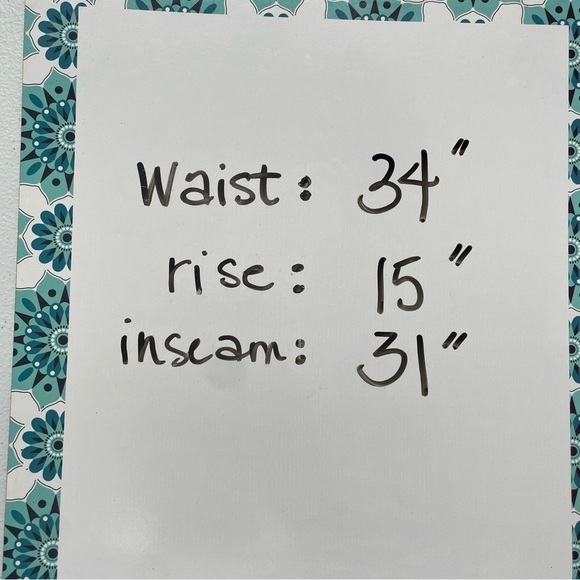 Waist: 34"
rise: 15"
inseam: 31"